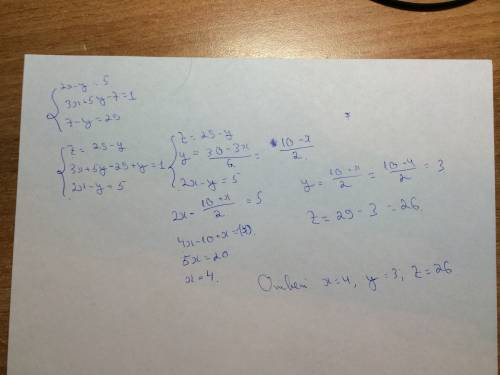 2x-y=5
3x+5y-7=1
7-y=29
z=29-y
3x+5y-29+y=1
2x-y=5
z=29-y
y=(30-3x)/6=(10-x)/2
2x-y=5
2x-(10+x)/2=5
4x-10+x=
5x=20
x=4.
y=(10+x)/2=(10-4)/2=3
z=29-3=26.
Ответ x=4, y=3; z=26